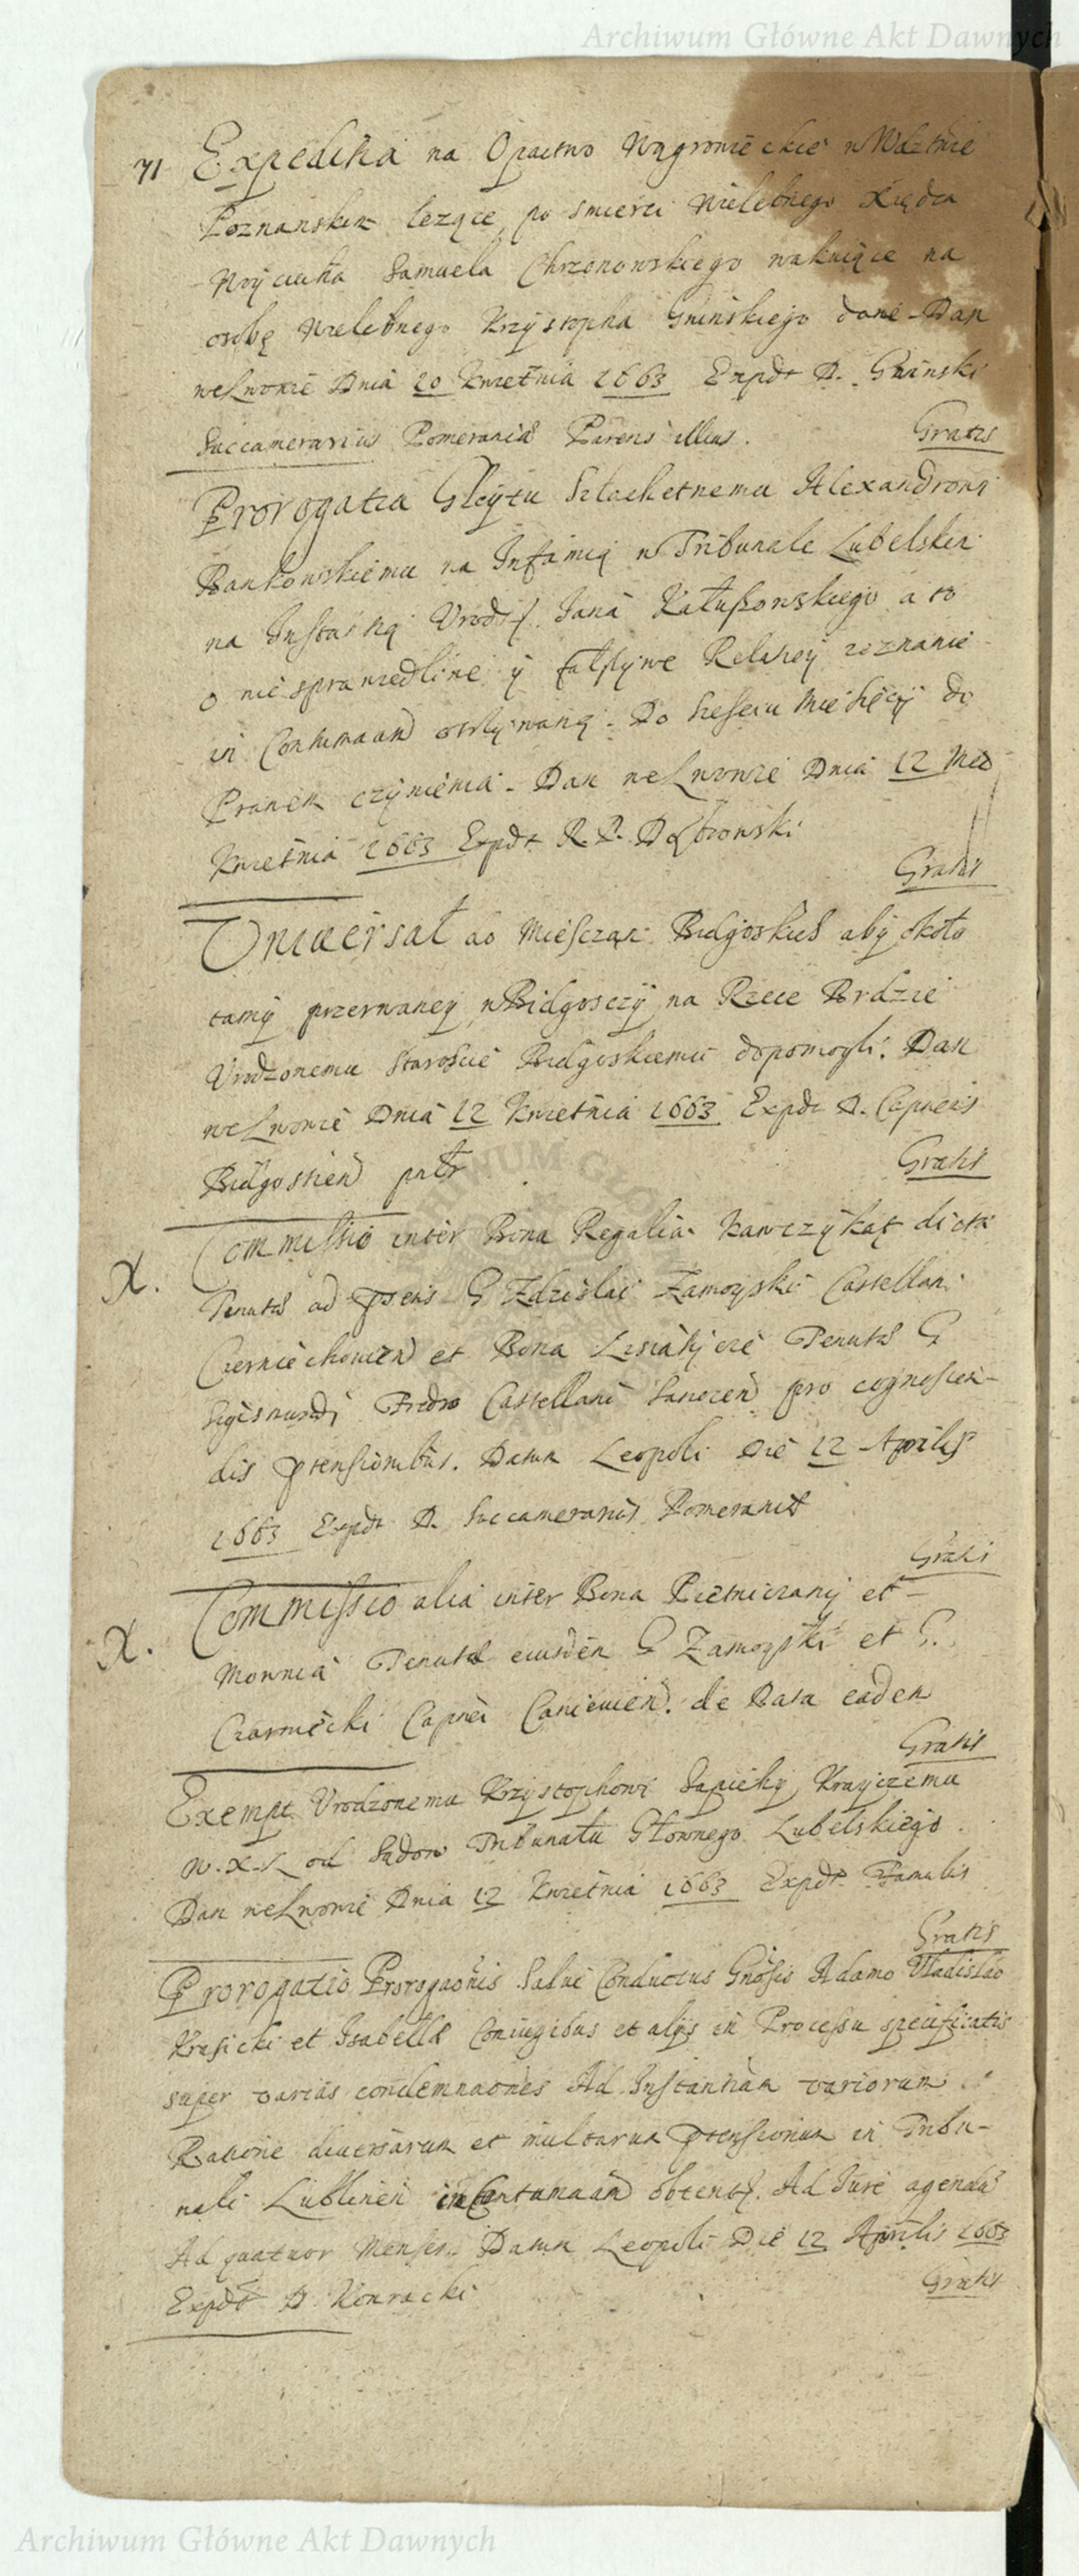 Archiwum Główne Akt Dawnych
71 Expeditia na Opactwo Wągrowieckie w Wdztwie
Poznanskim lezące, po smierci Wielebnego Xiędza
Woyciecha Samuela Chrzonowskiego wakuiące na
osobę Wielebnego Krzysztopha Gninskiego dane. Dan
we Lwowie Dnia 20 Kwietnia 1663 Expdt D. Gninski
Succamerarius Pomeraniae Parens illius.
Gratis
Prorogatia Gleytu Szlachetnemu Alexandrowi
Bankowskiemu na Infamią w Tribunale Lubelskim
na Instantią Jana Kałuszowskiego a to
o niesprawiedliwe y fałszywe Relatiey zeznanie
in Contumaciam otrzymaną. Do szesciu Miesięcy do
Prawem czynienia. Dan we Lwowie Dnia 12 Mca
Kwietnia 1663 Expdt R. P. Dąbrowski
Gratis
Uniwersał do Mieszczan Bidgoskich aby około
tamy przerwaney w Bidgosczy na Rzece Brdzie
Urodzonemu Staroscie Bidgoskiemu dopomogli. Dan
we Lwowie Dnia 12 Kwietnia 1663 Expdt D. Capneus
Bidgostien
Gratis
X. Commissio inter Bona Regalia dicta
Tenutae ad G Zdzislai Zamoyski Castellani
Czerniechowien et Bona Tenutae G
Sigismundi Fredro Castellani Sanocen pro cognoscen-
dis ptensionibus. Datum Leopoli Die 12 Aprilis
1663 Expdt D. Succamerarius Pomeraniae
Gratis
X. Commissio alia inter Bona Pietniczany et
Mownia Tenutae eiusdem G Zamoyski et G.
Czarniecki Capnei Caniewien. de Data eadem
Gratis
Exempt Urodzonemu Krzysztophowi Sapieḣy Krayczemu
W. X. L od Sądow Tribunału Głownego Lubelskiego.
Dan we Lwowie Dnia 12 Kwietnia 1663 Expdt Famulus
Gratis
Prorogatio Prorogaonis Salvi Conductus Gnosis Adamo Vladislao
Krasicki et Isabellae Coniugibus et alijs in Processu specificatis
super varias condemnaones Ad Instantiam variorum
Ratione diversarum et multarum ptensionum in Tribu-
nali Lublinen in Contumaciam obtent. Ad Iure agendum
Ad quatuor Menses. Datum Leopoli Die 12 Aprilis 1663
Expdt D
Gratis
Archiwum Główne Akt Dawnych